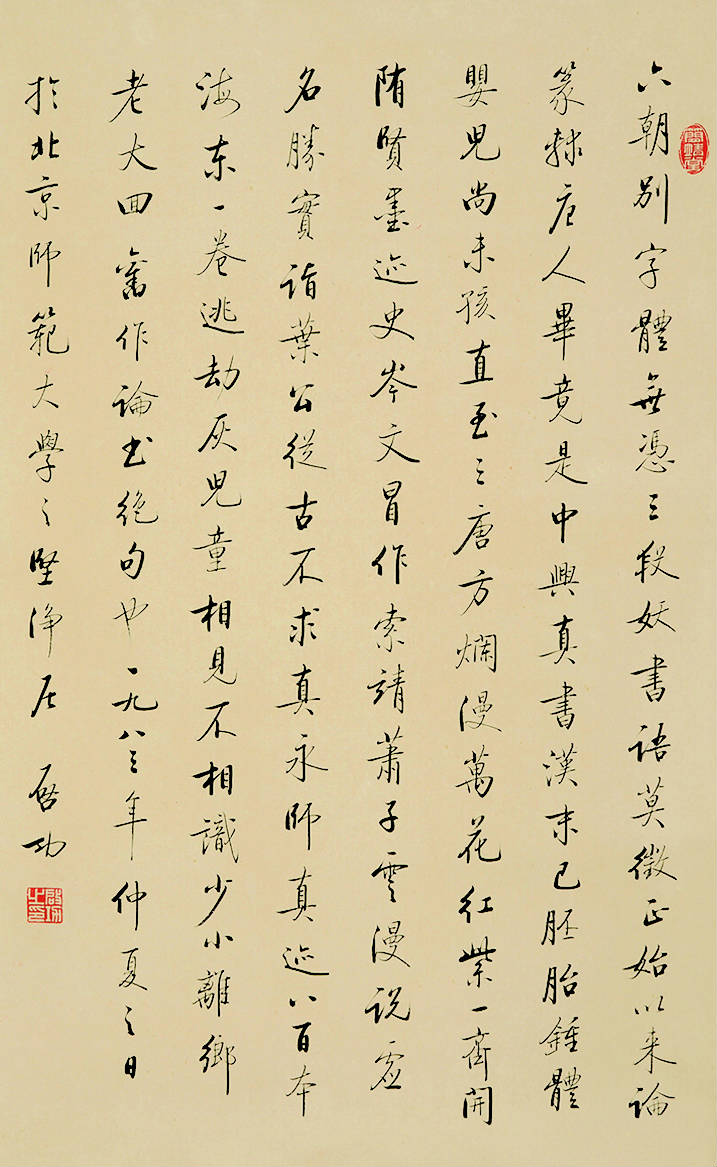 六朝別字體無憑三段妖書語莫徵正始以來論
篆隸唐人畢竟是中興真書漢末已胚胎鍾體
嬰兒尚未孩直至三唐方爛漫萬花紅紫一齊開
隋賢墨迹史岑文冒作索靖蕭子雲漫說虛
名勝實詣葉公從古不求真永師真迹八百本
海東一卷逃劫灰兒童相見不相識少小離鄉
老大回舊作論書絕句也一九八三年仲夏之日
於北京師範大學之堅淨居 啟功
啟功之印